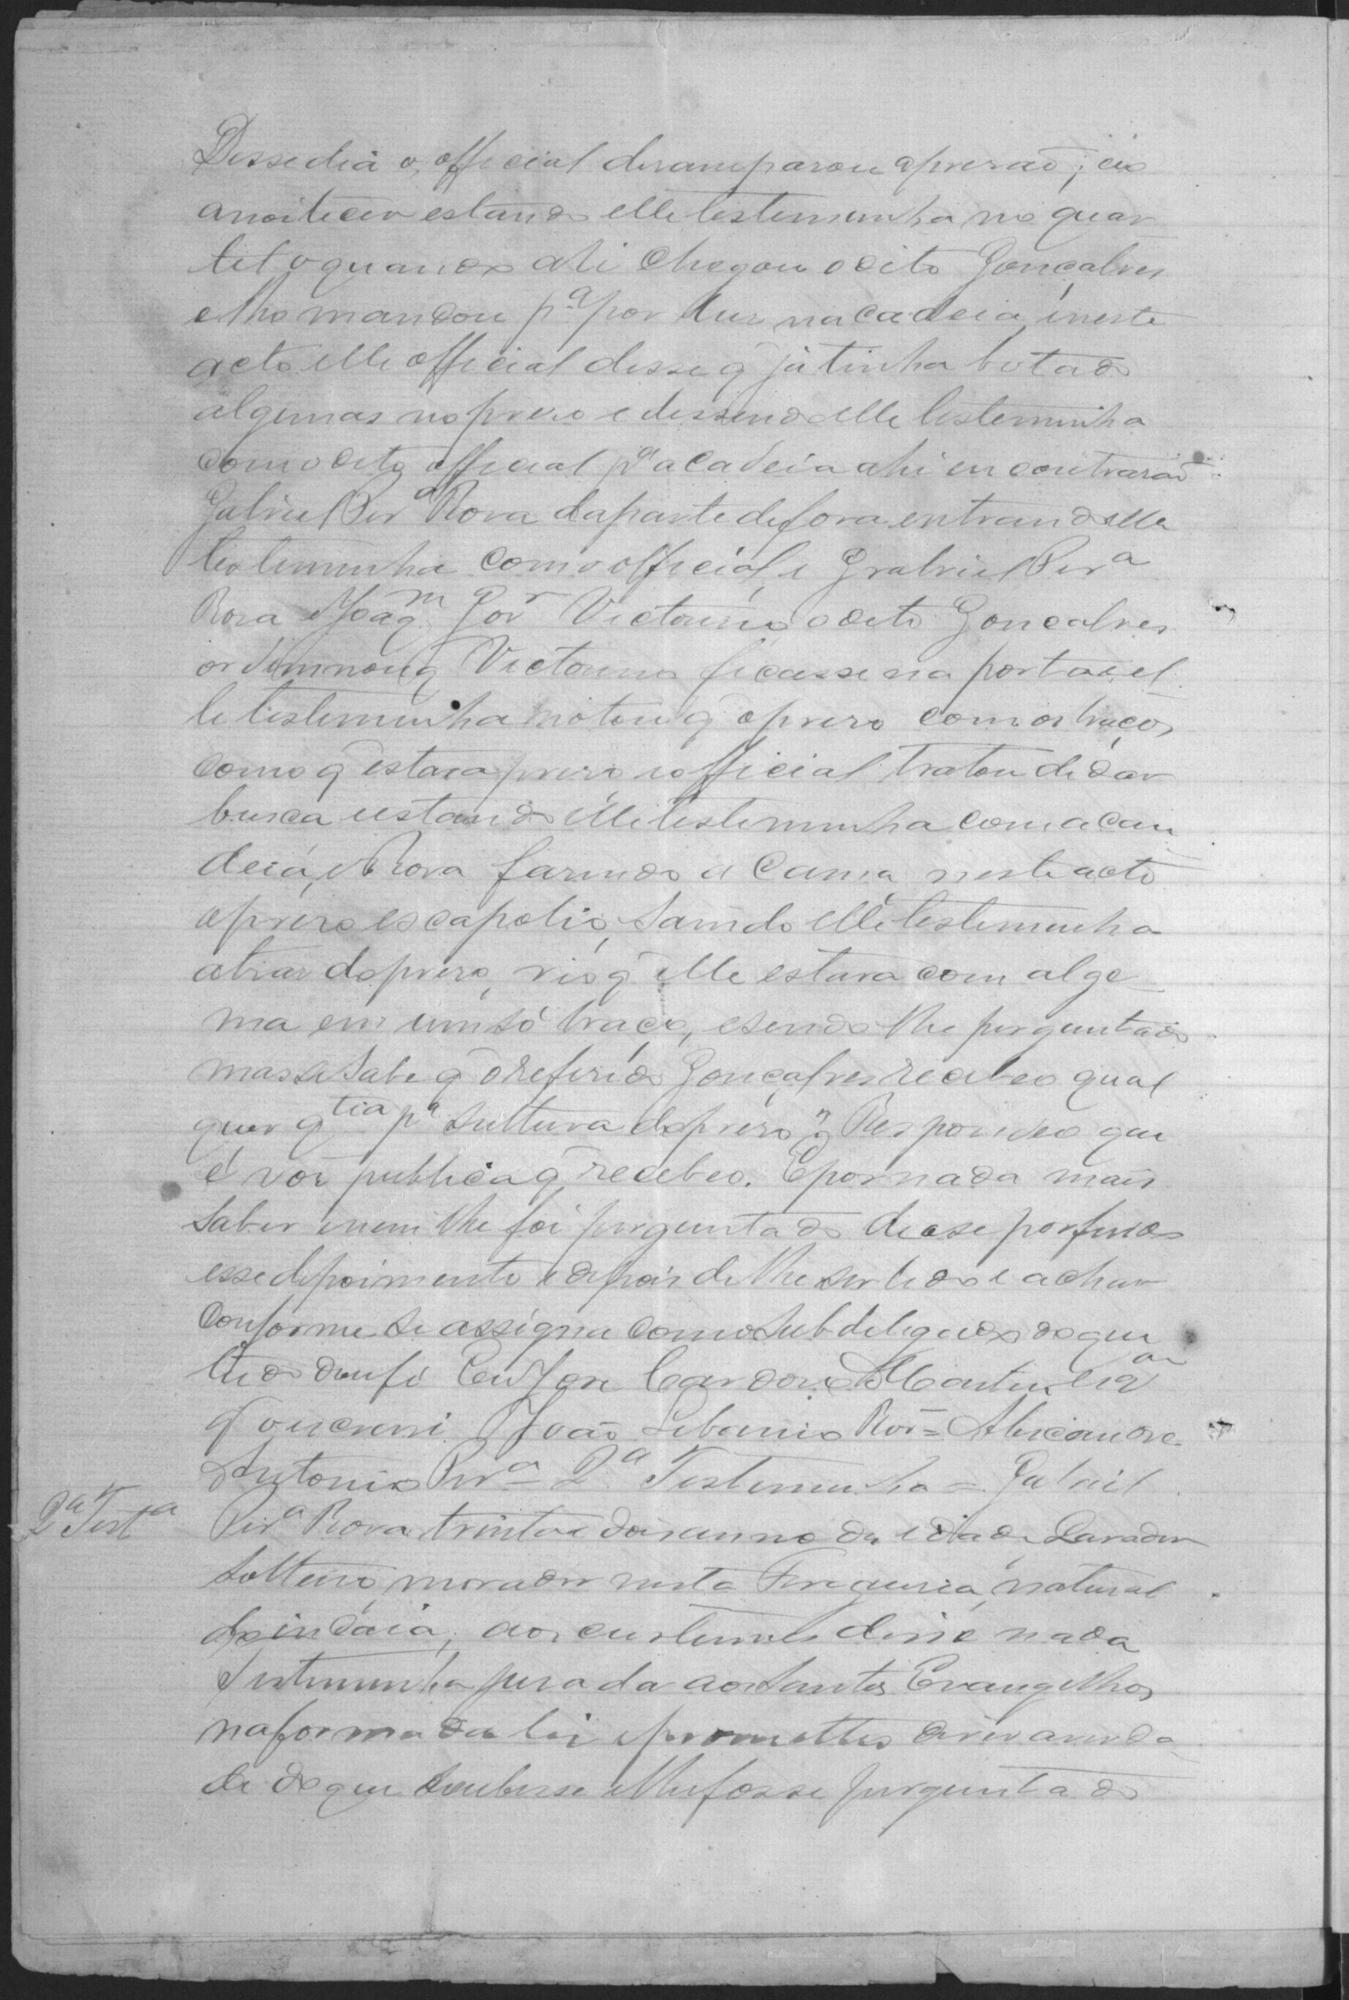 Desse dia o official desamparou a prezão; eis
anoitecer estando elle testemunha no quar
tel o quando ali chegou o dito Gonçalves
e lho mandou pª por luz na cadeia, e neste
acto elle official disse q já tinha botado
algemas no prezo e dessendo elle testeminha
com o dito official pª a cadeia ahi encontrarão
Gabriel Perª Roza da parte de fora, entrando elle
testemunha com o official, e Grabriel Perª
Roza e Joaqm Jor Victorino o dito Gonçalves
ordennou q Victorino ficasse na porta e el
le testemunha notou q o prezo com os braços
como q estava prezo e official tratou de dar
busca e estando elle testemunha com a can
deia, e Roza fazendo a cama, neste acto
o prezo escapolio, saindo elle testemunha
atraz do prezo, vio q elle estava com alge
ma em um só braço, e sendo lhe perguntado
mas se sabe q o referido Gonçalves recebeo qual
quer qtia pª sultura do prezo? Respondeo que
é voz publica q recebeo. E por nada mais
saber e nem lhe foi perguntado deose por findo
esse depoimento e depois de lhe ser lido e achar
conforme se assigna com o Subdelegado do que
tudo dou fé Eu Jose Cardozo Martins
q o escrevi João Libanio Roz = Alexandre
Antonio Perª = 2ª Testemunha = Gabriel
2ª Testª Perª Roza trinta e dois annos de idade Lavrador
Solteiro, morador nesta Freguezia, natural
do indáiá, aos custumes disse nada
Testemunha jurada aos Santos Evangelhos
na forma da lei e prometteo dizer a verda
de do que soubesse e lhe fosse perguntado